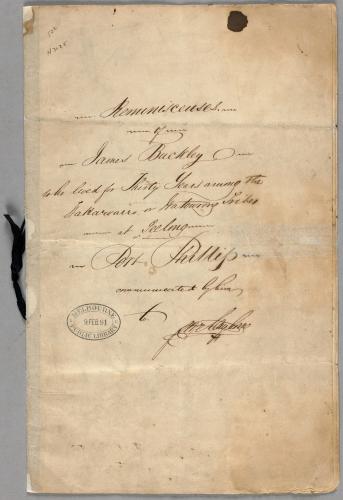 Reminiscenses
of
James Buckley
who lived for Thirty Years among the
Wakawarro or Watourong Tribes
at Geelong
Port Phillip
communicated by him
to
MELBOURNE
9 FEB 91
PUBLIC LIBRARY